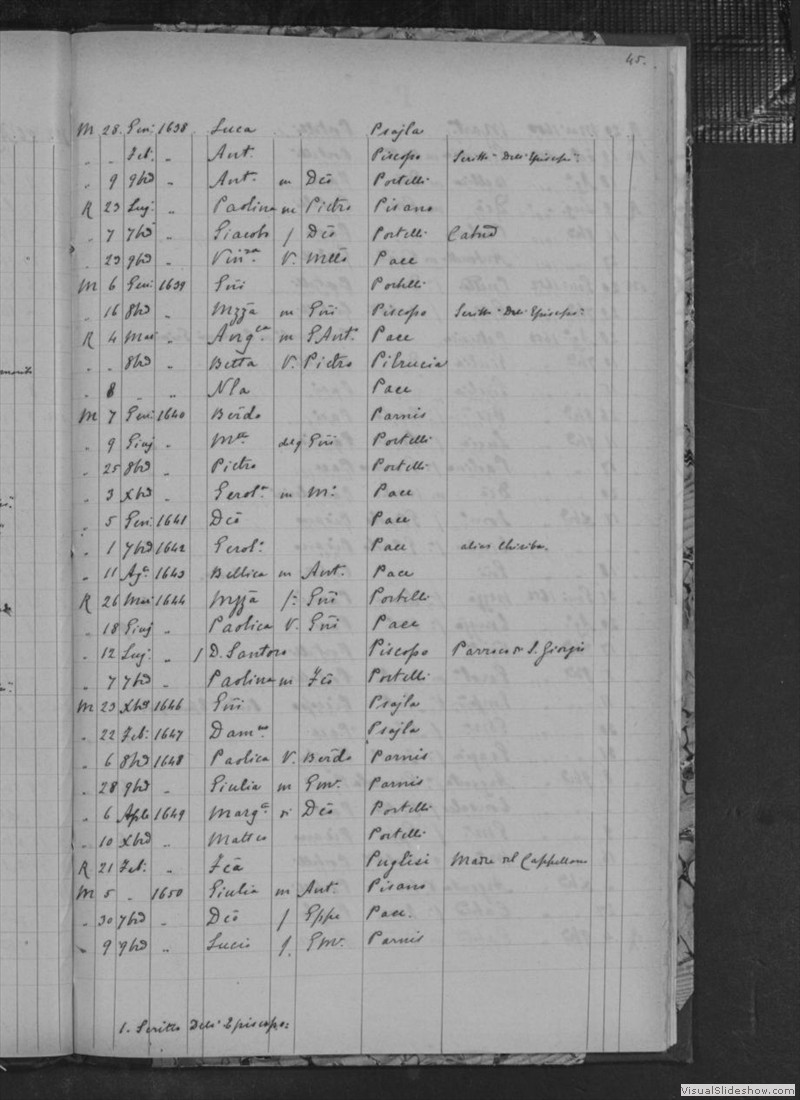 45.
M 28 Gen: 1638 Luca Psajla
" " Feb. " Ant. Piscopo Scritto Deli Episcopi:
" 9 9br̃ " Ant. m Dẽo Portelli
R 23 Lug: " Paolina m Pietro Pisano
" 7 7br̃ " Giacobo f Dẽo Portelli
" 23 9br̃ " V. Pace
M 6 Gen: 1639 Gñi Portelli
" 16 8br̃ " Mzzã m Gñi Piscopo Scritto Deli Episcopo:
R 4 Mar " m Pace
" " 8br̃ " Betta V. Pietro
" 8 " " Nla Pace
M 7 Gen: 1640 Berdo Parnis
" 9 Giug " Gñi Portelli
" 25 8br̃ " Pietro Portelli
" 3 Xbr̃ " Gerol.a m Pace
" 5 Gen: 1641 Dẽo Pace
" 1 7br̃ 1642 Gerol. Pace alias
" 11 Ag.o 1643 Bellica m Ant. Pace
R 26 Mar 1644 Mzzã f: Gñi Portelli
" 18 Giug " Paolica V. Gñi Pace
" 12 Lug: " / D. Santoro Piscopo Parroco di S. Giorgio
" 7 7br̃ " Paolina m Portelli
M 23 Xbr̃ 1646 Gñi Psajla
" 22 Feb: 1647 Psajla
" 6 8br̃ 1648 Paolica V. Berdo Parnis
" 28 9br̃ " Giulia m Gmv. Parnis
" 6 Aple 1649 Marg.a Dẽo Portelli
" 10 Xbr̃ " Matteo Portelli
R 21 Feb: " Puglisi Madre del Cappellano
M 5 " 1650 Giulia m Ant. Pisano
" 30 7br̃ " Dẽo f Gppe Pace.
" 9 9br̃ " Lucio f. Gmv. Parnis
1. Scritto Deli Episcopo:
VisualSlideshow.com